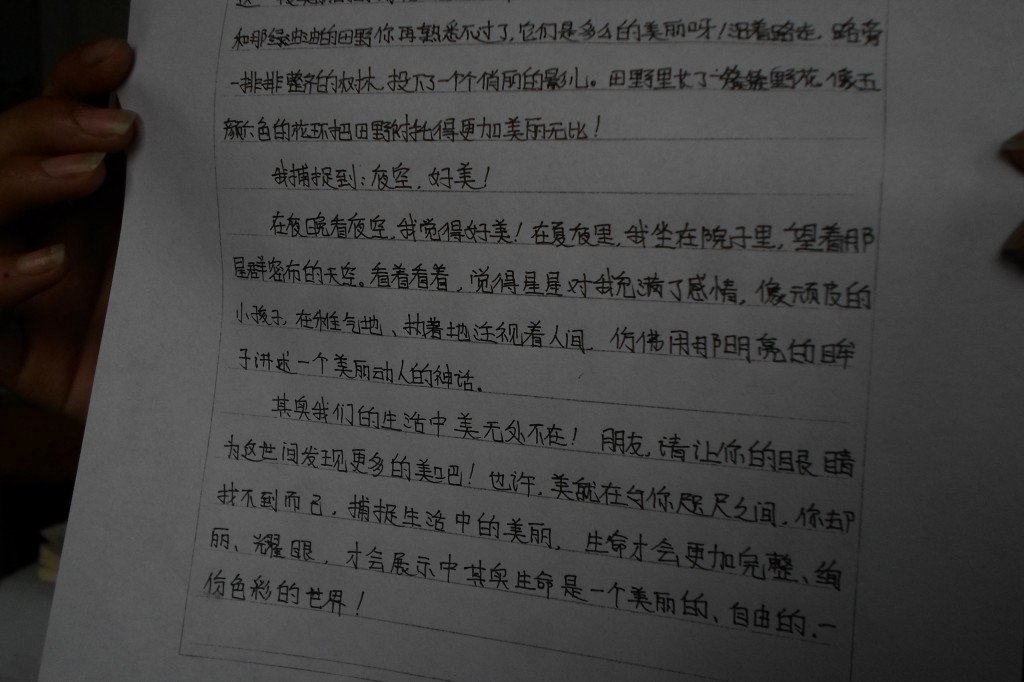 和那绿油油的田野你再熟悉不过了,它们是多么的美丽呀!沿着路走,路旁
一排排整齐的树木,投下了一个个俏丽的影儿。田野里长了一簇簇野花,像五
颜六色的花环把田野衬托得更加美丽无比!
我捕捉到:夜空,好美!
在夜晚看夜空,我觉得好美!在夏夜里,我坐在院子里,望着那
星群密布的天空。看着看着,觉得星星对我充满了感情,像顽皮的
小孩子,在稚气地、执著地注视着人间,仿佛用那明亮的眸
子讲述一个美丽动人的神话。
其实我们的生活中美无处不在!朋友,请让你的眼睛
为这世间发现更多的美吧!也许,美就在与你咫尺之间,你却
找不到而已,捕捉生活中的美丽,生命才会更加完整、绚
丽、耀眼,才会展示中其实生命是一个美丽的、自由的,一
份色彩的世界!